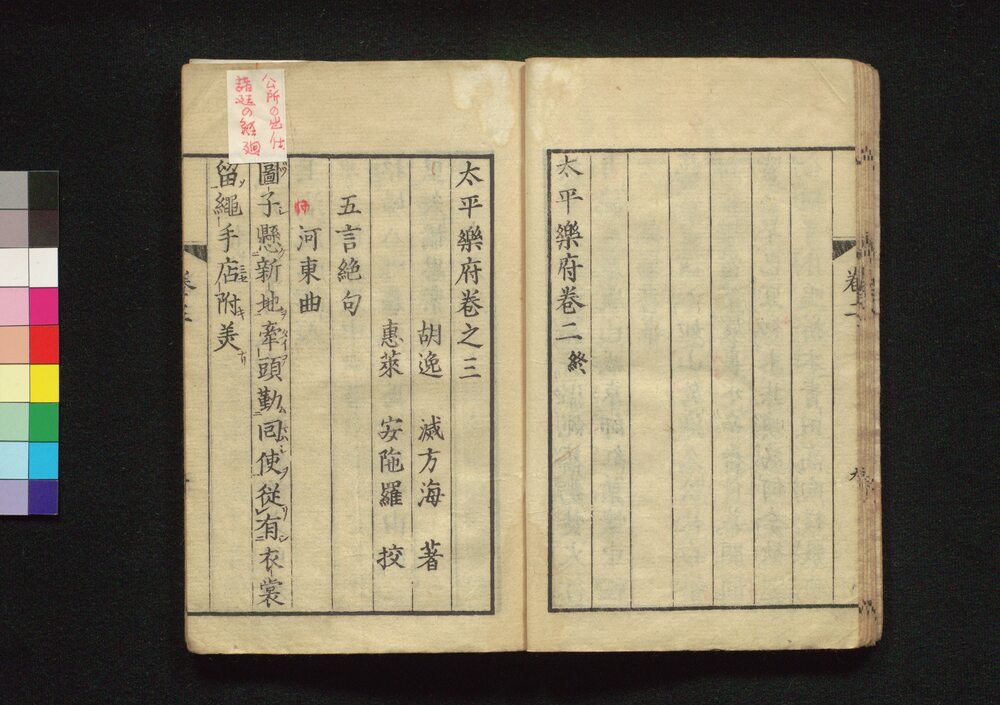 太平樂府卷二終
太平樂府卷之三
胡逸 滅方海 著
惠萊 安陁羅山 挍
五言絶句
河東曲
圖子懸新地牽頭勤回使從有衣裳
留繩手店附美
公所の出仕
諸廷の経廻
卷二